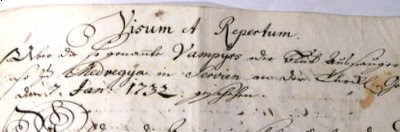 Visum et Repertum.
Über die so genannte Vampyrs oder Blut aussauger
so zu Medvegya in Servien an der Türk:
den 7. Jan: 1732. geschehen.